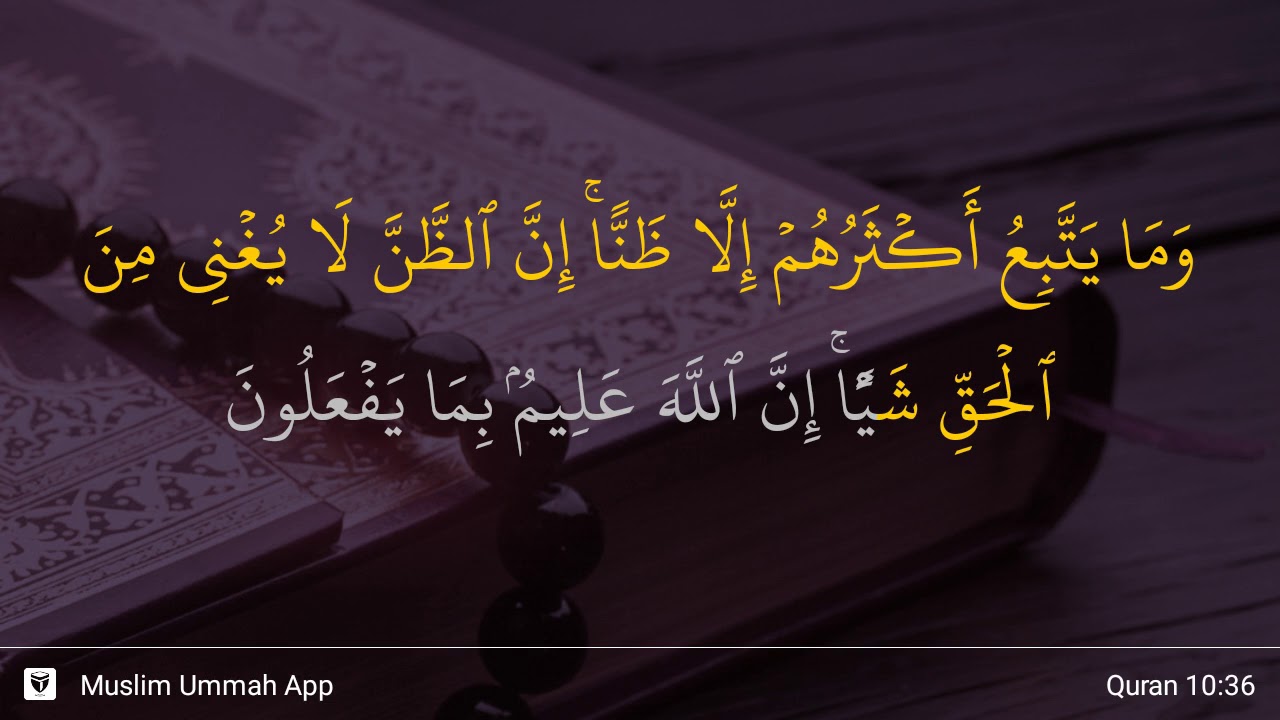 وَمَا يَتَّبِعُ أَكۡثَرُهُمۡ إِلَّا ظَنًّاۚ إِنَّ ٱلظَّنَّ لَا يُغۡنِى مِنَ
ٱلۡحَقِّ شَيۡـًٔاۚ إِنَّ ٱللَّهَ عَلِيمُۢ بِمَا يَفۡعَلُونَ
Muslim Ummah App
Quran 10:36